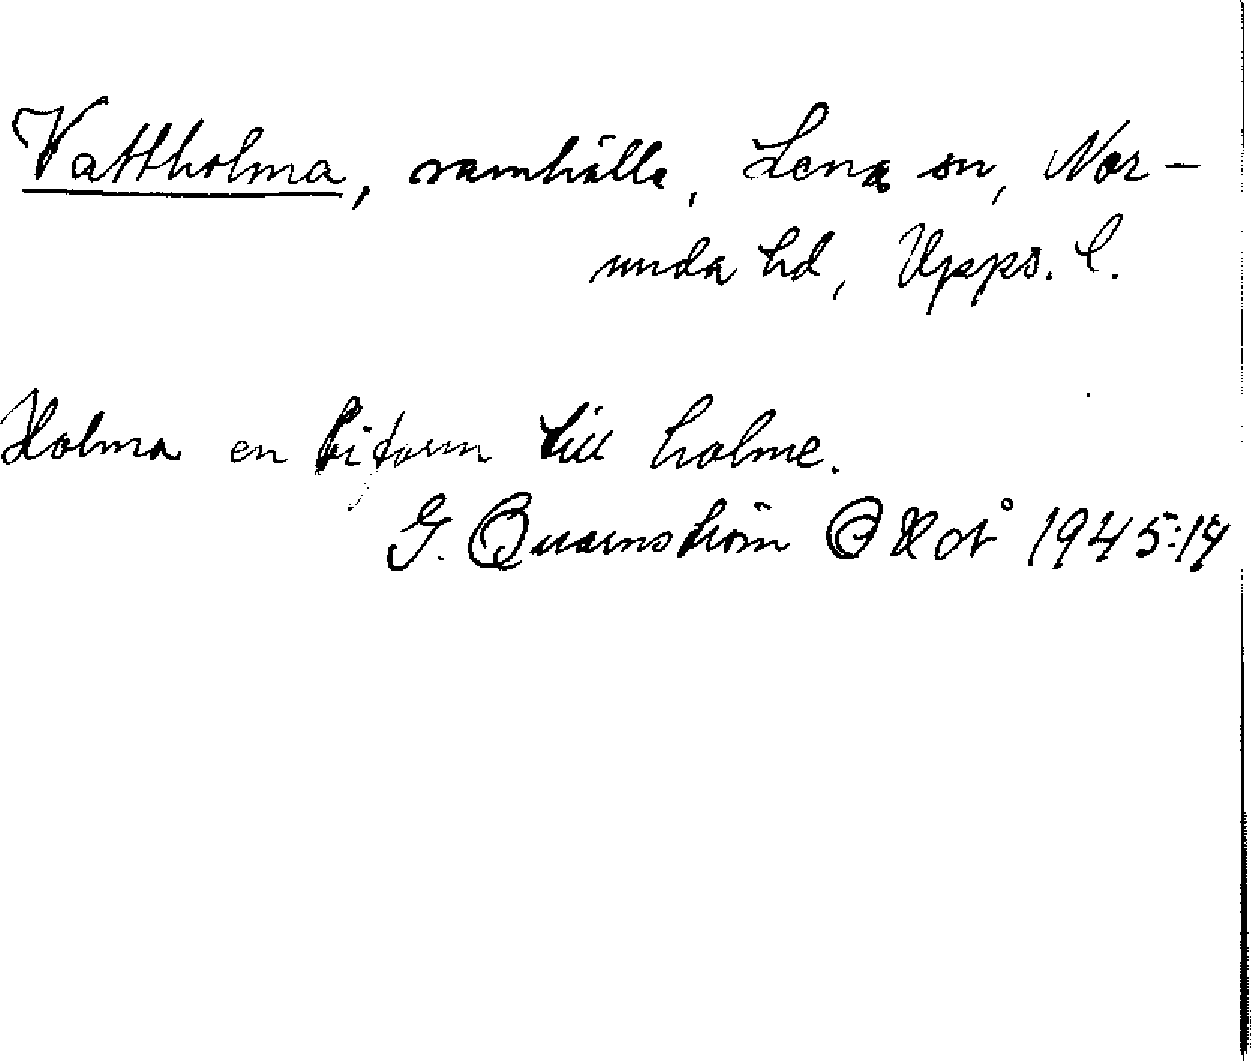 Vattholma, samhälle, Lena sn, Nor-
unda hd, Upps. l.
Holma en biform till holme.
G. Quarnström 1945:14